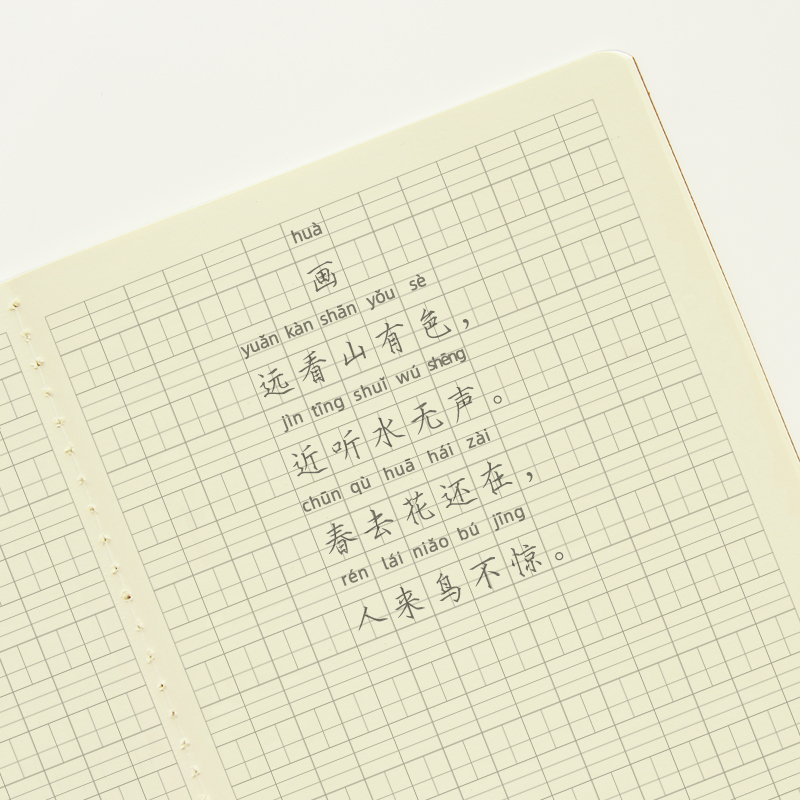 huà
画
yuǎn kàn shān yǒu sè
远看山有色，
jìn tīng shuǐ wú shēng
近听水无声。
chūn qù huā hái zài
春去花还在，
rén lái niǎo bú jīng
人来鸟不惊。